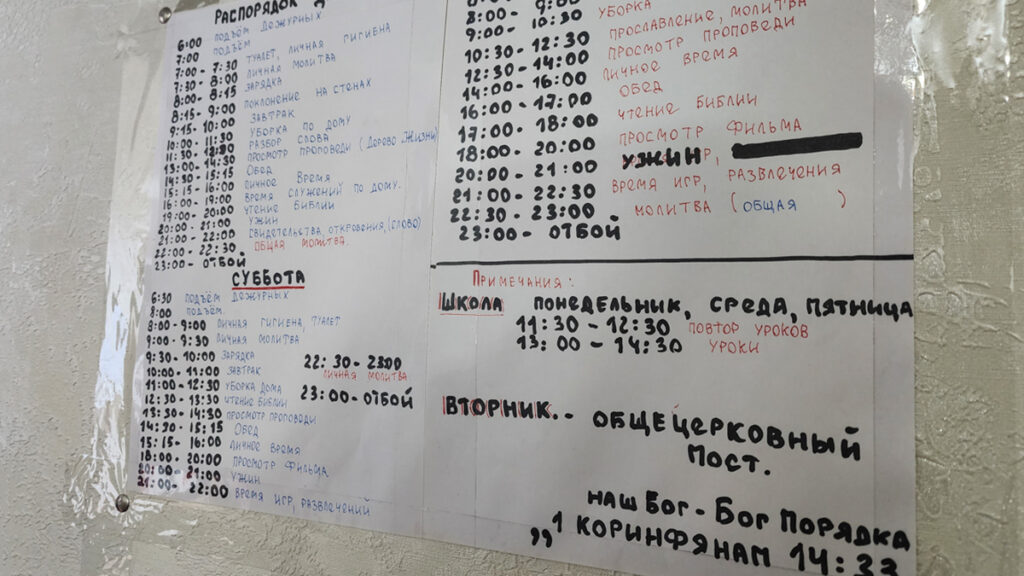 РАСПОРЯДОК
6:00 подъём дежурных
7:00 подъём
7:00 - 7:30 туалет, личная гигиена
7:30 - 8:00 личная молитва
8:00 - 8:15 зарядка
8:15 - 9:00 поклонение на стенах
9:15 - 10:00 завтрак
10:00 - 11:30 уборка по дому
11:30 - 12:30 разбор слова
13:00 - 14:30 просмотр проповеди (Дерево Жизни)
14:30 - 15:15 обед
15:15 - 16:00 личное время
16:00 - 19:00 время служений по дому.
19:00 - 20:00 чтение библии
20:00 - 21:00 ужин
21:00 - 22:00 свидетельства, откровения, (слово)
22:00 - 22:30 общая молитва.
23:00 - отбой
СУББОТА
6:30 подъём дежурных
8:00 подъём.
8:00 - 9:00 личная гигиена, туалет
9:00 - 9:30 личная молитва
9:30 - 10:00 зарядка
10:00 - 11:00 завтрак
11:00 - 12:30 уборка дома
12:30 - 13:30 чтение библии
13:30 - 14:30 просмотр проповеди
14:30 - 15:15 обед
15:15 - 16:00 личное время
18:00 - 20:00 просмотр фильма
20:00 - 21:00 ужин
21:00 - 22:00 время игр, развлечений
22:30 - 23:00
личная молитва
23:00 - отбой
8:00 - 9:00 уборка
9:00 - 10:30 прославление, молитва
10:30 - 12:30 просмотр проповеди
12:30 - 14:00 личное время
14:00 - 16:00 обед
16:00 - 17:00 чтение библии
17:00 - 18:00
18:00 - 20:00 просмотр фильма
20:00 - 21:00 ужин
21:00 - 22:30 время игр, развлечения
22:30 - 23:00 молитва (общая )
23:00 - отбой
Примечания:
Школа понедельник, среда, пятница
11:30 - 12:30 повтор уроков
13:00 - 14:30 уроки
Вторник.. - общецерковный
пост.
наш Бог - Бог порядка
„1 Коринфянам 14:33